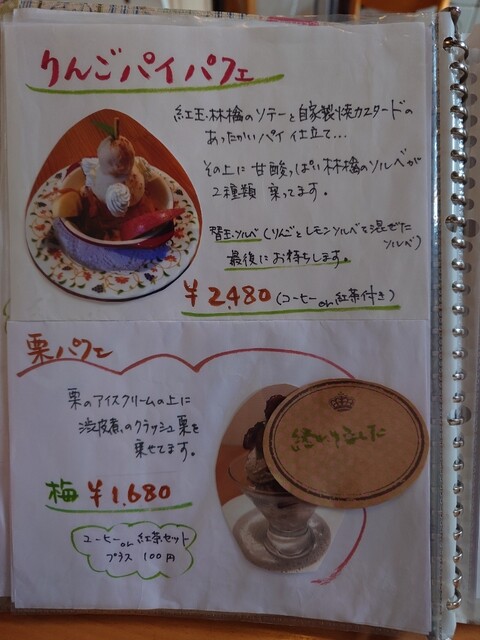 りんごパイパフェ
紅玉・林檎のソテーと自家製焼カスタードの
あったかいパイ仕立て…
その上に甘酸っぱい林檎のソルベが
2種類 乗ってます。
替玉ソルベ(りんごとレモンソルベを混ぜた
ソルベ)
最後にお持ちします。
¥2,480(コーヒーor紅茶付き)
栗パフェ
栗のアイスクリームの上に
渋皮煮のクラッシュ栗を
乗せてます。
終わりました
梅 ¥1,680
コーヒーor紅茶セット
プラス 100円